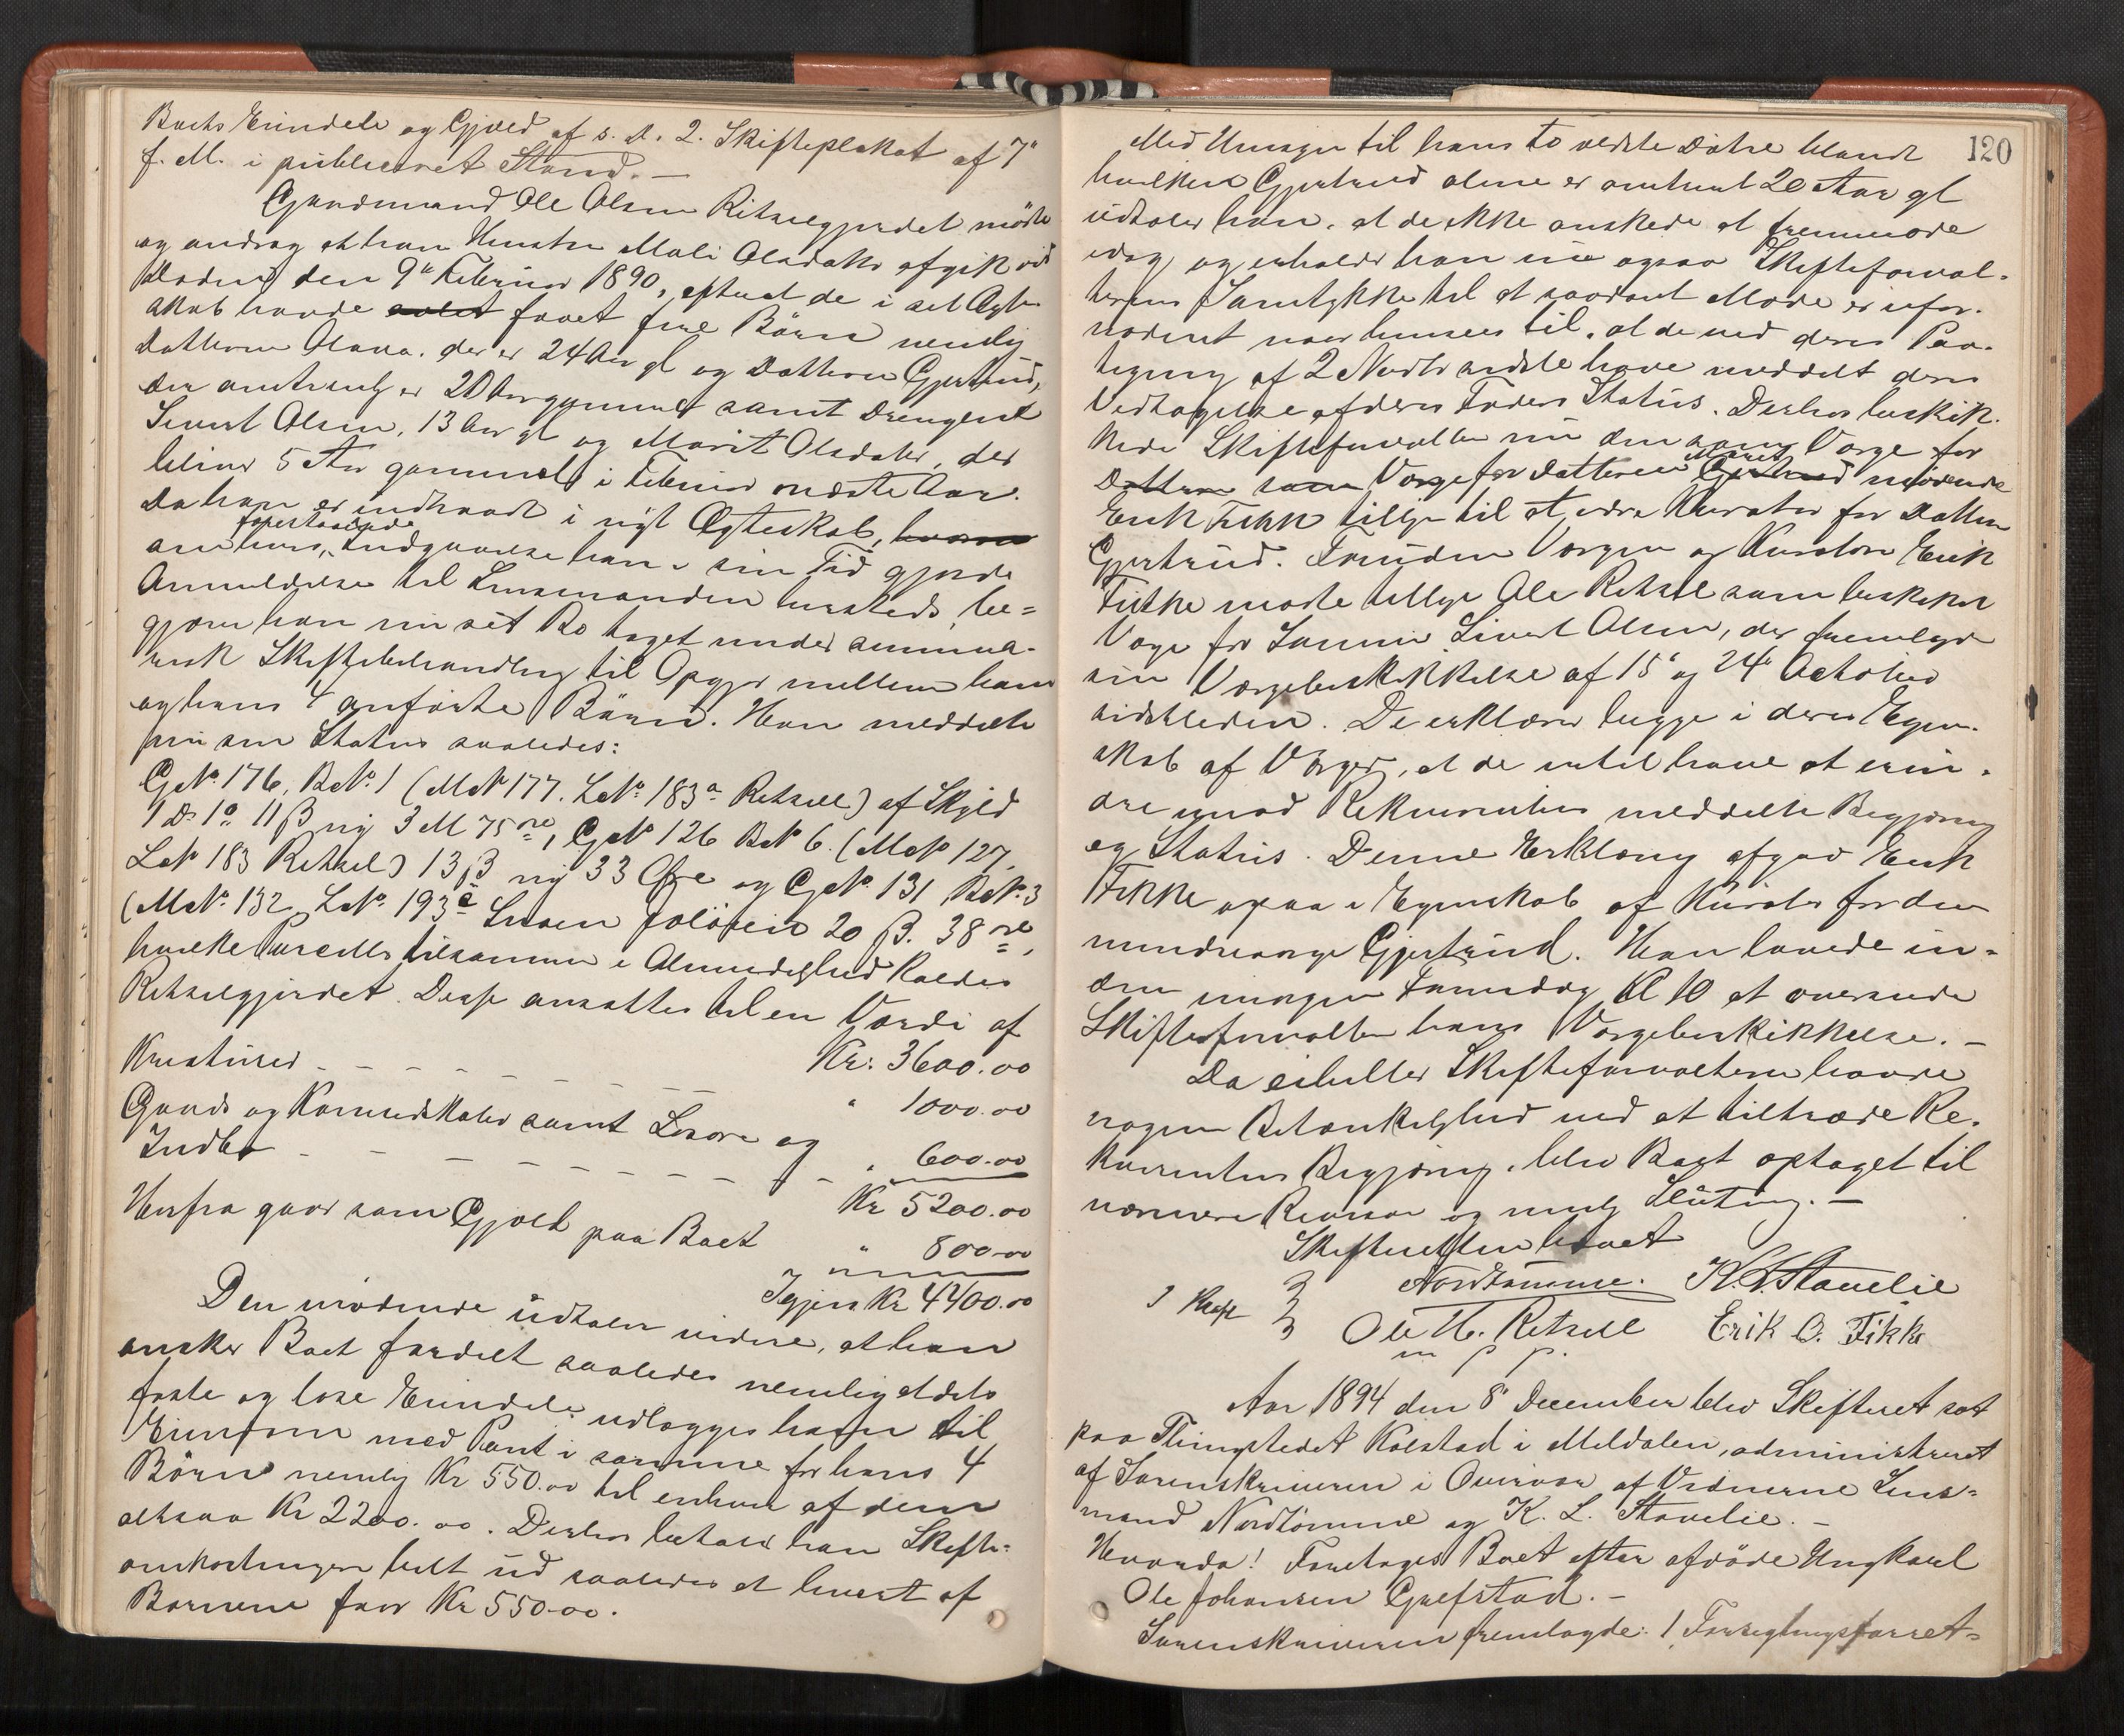 Boets Eiendele og Gjæld af s. D. 2. Skifteplakat af 7"
f. M. i publiceret Stand. —
Gaardmand Ole Olsen Ritzelgjerdet mødte
og androg at hans Hustru Mali Olsdatter afgik ved
Døden den 9" Februar 1890, efterat de i sit Ægte-
skab havde faaet fire Börn nemlig
Datteren Olava, der er 24 Aar gl og Datteren Gjertrud,
der omtrent er 20 Aar gammel samt Drengene
Sivert Olsen, 13 Aar gl og Marit Olsdatter, der
bliver 5 Aar gammel i Februar næste Aar.
Da han er indtraadt i nyt Ægteskab,
om hvis forestaaende Indgaaelse han i sin Tid gjorde
Anmeldelse til Lensmanden hersteds, be=
gjærer han nu sit Bo taget under summa-
risk Skiftebehandling til Opgjør mellem ham
og hans 4 anførte Börn. Han meddelte
nu sin Status saaledes:
G No. 176, B No. 1 (M No 177. L No. 183a Retzell) af Skyld
1 D. 1 o. 11 β ny 3 M 75 øre, G No 126 B No 6. (M No 127,
L No 183 Retzel) 13 β ny 33 Øre og G No. 131 B No. 3
(M No. 132 L No. 193 20 β. 38 øre,
hvilke Parceller tilsammen i Almindelighed kaldes
Retzelgjerdet. Disse ansattes til en Værdi af
Kr: 3600.00
Kreaturer - - - - - - " 1000.00
Gaards og Kjøreredskaber samt Løsøre og
Indbo - - - - - - - - " 600.00
Kr 5200.00
Herfra gaar som Gjæld paa Boet " 800.00
Igjen Kr 4400.00
Den mødende udtaler videre, at han
ønsker Boet fordelt saaledes nemlig at dets
faste og løse Eiendele udlægges ham til
Eiendom med Pant i samme for hans 4
Börn nemlig Kr 550.00 til enhver af dem
altsaa Kr 2200.00. Derhos betaler han Skifte-
omkostningerne helt ud saaledes at hvert af
Børnene faar Kr 550.00.
120
Med Hensyn til hans to ældste Døtre blandt
hvilke Gjertrud alene er omtrent 20 Aar gl
udtaler han, at de ikke ønskede at fremmøde
idag og erholdt han nu ogsaa Skifteforval-
terens Samtykke til at saadant Møde er ufor-
nødent naar henses til, at de ved deres Paa-
tegning af 2 Novbr sidste have meddelt deres
Vedtagelse af deres Faders Status. Derhos beskik-
kede Skifteforvalteren nu den som Værge for
Datteren som Værge for Datteren Marit Gjertrud mødende
Erik Fikke tillige til at være Kurator for Datteren
Gjertrud. Foruden Værgen og Kuratoren Erik
Fikke mødte tillige Ole Retzell som beskikket
Værge for Sønnen Sivert Olsen, der fremlagde
sin Værgebeskikkelse af 15" og 24" October
sidstleden. De erklærer begge i deres Egen-
skab af Værger, at de intet have at erin-
dre imod Rekvirentens meddelte Begjæring
og Status. Denne Erklæring afgav Erik
Fikke ogsaa i Egenskab af Kurator for den
mindreaarige Gjertrud. Han lovede in-
den imorgen Formidag Kl 10 at oversende
Skifteforvalteren hans Værgebeskikkelse. —
Da eiheller Skifteforvalteren havde
nogen Betænkelighed ved at tiltræde Re-
kvirentens Begjæring, blev Boet optaget til
nærmere Revision og mulig Slutning. —
Skifteretten hævet
Nordtømme. K. L. Stavelie
Ole H. Retzell Erik O. Fikke
m p p.
Aar 1894 den 8" December blev Skifteret sat
paa Thingstedet Kalstad i Meldalen, administreret
af Sorenskriveren i Overvær af Vidnerne Lens=
mand Nordtömme og K. L. Stavelie. —
Hvorda! Foretoges Boet efter afdöde Ungkarl
Ole Johansen Grefstad. —
Sorenskriveren fremlagde: 1, Forseglingsforret=